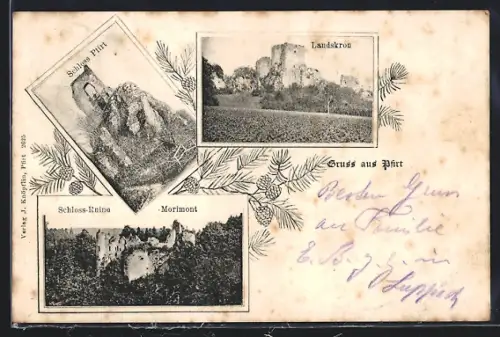 Schloss Pfirt
Landskron
Gruss aus Pfirt
Schloss-Ruine -Morimont
Verlag J. Knöpflin, Pfirt 2625
Besten Gruss
an Familie
E. B.